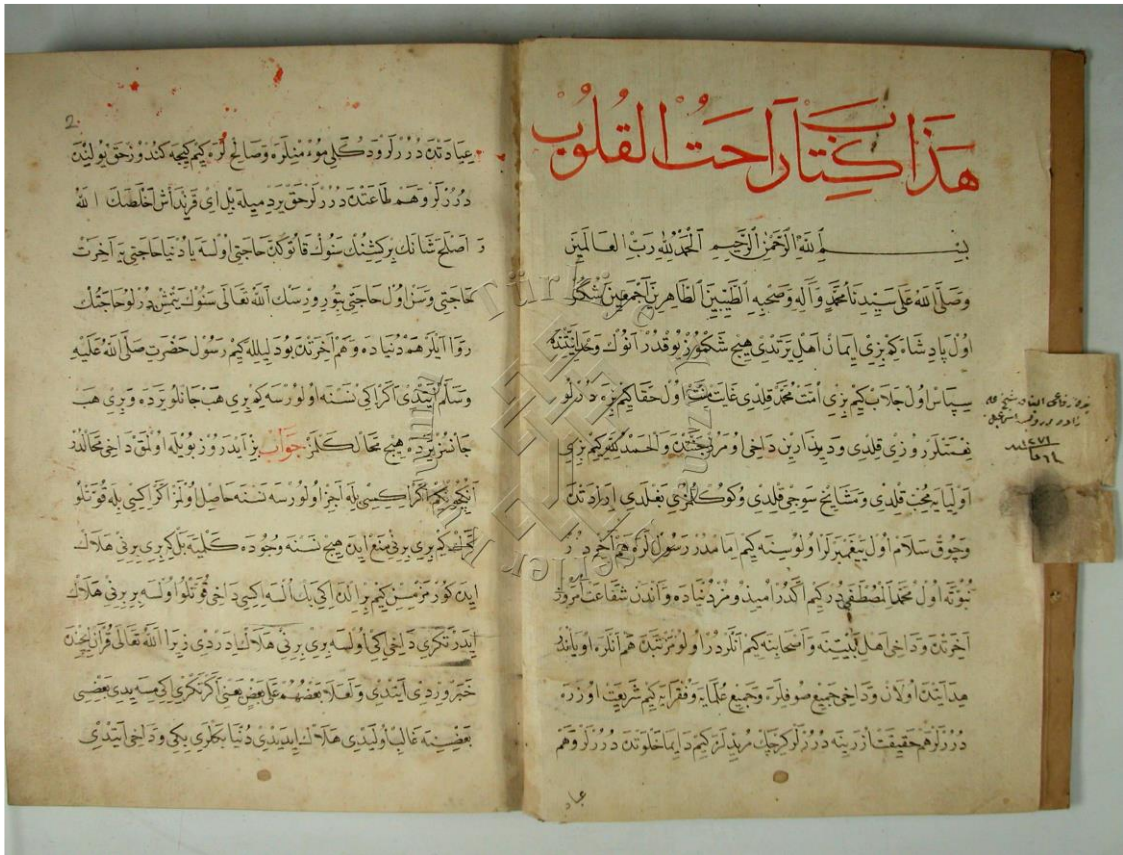 هَذَا كِتَابُ رَاحَتُ الْقُلُوبْ
بِسْمِ اللهِ الرَّحْمٰنِ الرَّحِيمِ الْحَمْدُ لِلّٰهِ رَبِّ الْعَالَمِينَ
وَصَلَّى اللهُ عَلَى سَيِّدِنَا مُحَمَّدٍ وَآلِهِ وَصَحْبِهِ الطَّيِّبِينَ الطَّاهِرِينَ اَجْمَعِينَ شُكُرْ
اول پادشاه كم بزى ايمان اهلى يرتدى هيچ شكموز يوقدر آنوك وحدانيتنه
سپاس اول جلابه كيم بزى امت محمد قلدى غايت منت اول حقا كيم بزه درلو
نعمتلر روزى قلدى وديدارين داخى اومرز جنتدن والحمد لله كيم بزى
اوليايه محب قلدى ومشايخ سوجى قلدى وكوكلمزى بغلدى ارادتدن
وچوق سلام اول پيغمبرلر اولوسنه كيم امامدر رسول لره هم آخردر
نبوته اول محمد المصطفى در كيم اكدر اميدومز دنياده واندن شفاعت امرز
آخرتدن وداخى اهل بيتنه واصحابنه كيم آنلردر اولو مرتبه هم آنلره اوياندر
هدايتدن اولان وداخى جميع صوفلره وجميع علمايه وفقرايه كيم شريعت اوزره
دررلر هم حقيقت ازرينه دررلر كرچك مريدلره كيم دايما خلوتدن دررلر وهم
عباد
2
عبادتدن دررلر ودكلى مؤمنلره وصالح لره كيم كيجه كندوز حق يولندن
دررلر وهم طاعتدن دررلر حق يرديميله بل اى قرنداش اخلطك الله
واصلح شانك بر كشينك سنوك قاتوكن حاجتى اولسه يا دنيا حاجتى يا آخرت
حاجتى وسن اول حاجتى بتوررسك الله تعالى سنوك يتمش درلو حاجتك
روا ايلر هم دنياده وهم آخرتدن بو دليلله كيم رسول حضرت صلى الله عليه
وسلم ايتدى اكر اكى نسنه اولورسه كم برى هب جانلو يرده وبرى هب
جانسز يرده هيچ محال كلمز جواب بز ايدرز بويله اولمق داخى محالدر
آنكچونكم اكر اكيسى بله عاجز اولورسه نسنه حاصل اولمز اكر اكيسى بله قوتلو
برى برنى منع ايدر هيچ نسنه وجوده كلميه بلكه برى برنى هلاك
ايدر كورمزمسن كيم بر الدن اكى بك السه اكيسى داخى قوتلو اولسه بر برنى هلاك
ايدر تكرى داخى اكى اولسه برى برنى هلاك ايدردى زيرا الله تعالى قرآن ايچندن
خبر وردى ايتدى ولعلا بعضهم على بعض يعنى اكر تكرى اكيمسيدى بعضى
بعضنه غالب اوليدى هلاك ايديدى دنيا بكلرى بكى وداخى ايتدى
Türkiye Yazma Eserler Kurumu